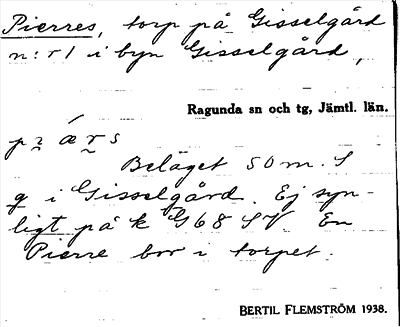 Pierres, torp på Gisselgård
n:r 1 i byn Gisselgård,
Ragunda sn och tg, Jämtl. län.
Beläget 50 m. S
g i Gisselgård. Ej syn-
ligt på k G68 SV. En
Pierre bor i torpet.
BERTIL FLEMSTRÖM 1938.